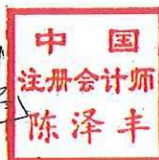 中国
注册会计师
陈泽丰